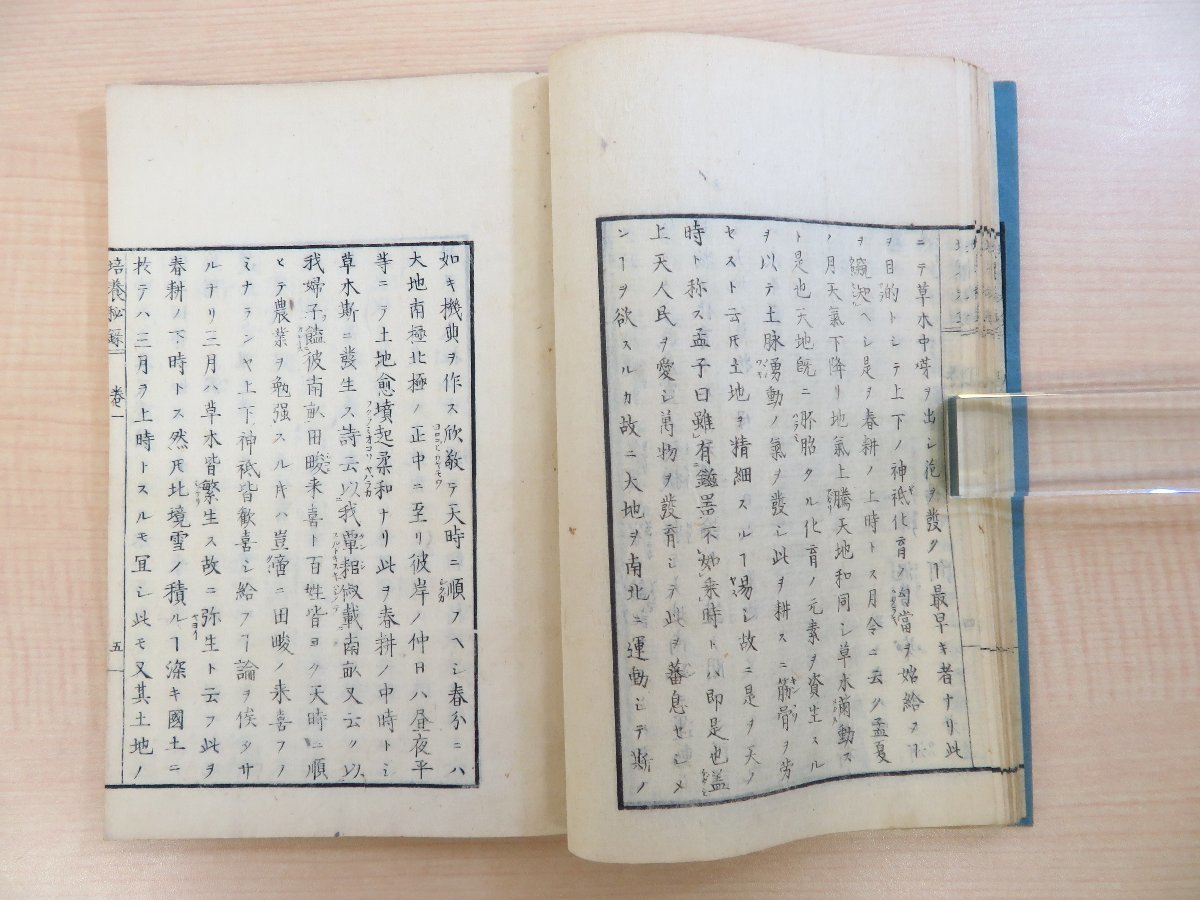 ニテ草木中嘢ヲ出シ花ヲ發クヿ最早キ者ナリ此
ヲ目的トシテ上下ノ神祇化育ノ勾當ヲ始給フ
ヲ窺知ヘシ是ヲ春耕ノ上時トス月令ニ云ク孟夏
ノ月天氣下降リ地氣上騰天地和同シ草木萠動ス
ト是也天地既ニ胚胎タル化育ノ元素ヲ資生スル
ヲ以テ土脉湧動ノ氣ヲ發シ此ヲ耕スニ筋骨ヲ労
セスト云𪜈土地ヲ精細スルヿ昜シ故ニ是ヲ天ノ
時ト称ス孟子曰雖有鎡器不如乘時トハ即是也盖
上天人民ヲ愛シ萬物ヲ發育シテ此ヲ蕃息セシメ
ンヿヲ欲スルカ故ニ大地ヲ南北ニ運動シテ斯ノ
如キ機輿ヲ作ス欣敬テ天時ニ順フヘシ春分ニハ
大地南極北極ノ正中ニ至リ彼岸ノ仲日ハ昼夜平
等ニテ土地愈墳起柔和ナリ此ヲ春耕ノ中時トシ
草木斯ニ發生ス詩云以我覃耜俶載南畝又云ク以
我婦子饁彼南畝田畯来喜ト百姓皆ヨク天時ニ順
ヒテ農業ヲ勉强スル𪜈ハ豈啻ニ田畯ノ来喜フノ
ミナランヤ上下神祇皆歓喜シ給フヿ論ヲ俟タサ
ルナリ三月ハ草木皆繁生ス故ニ弥生ト云フ此ヲ
春耕ノ下時トス然𪜈北境雪ノ積ルヿ深キ國土ニ
於テハ三月ヲ上時トスルモ冝シ此モ又其土地ノ
培養秘録 巻一 五